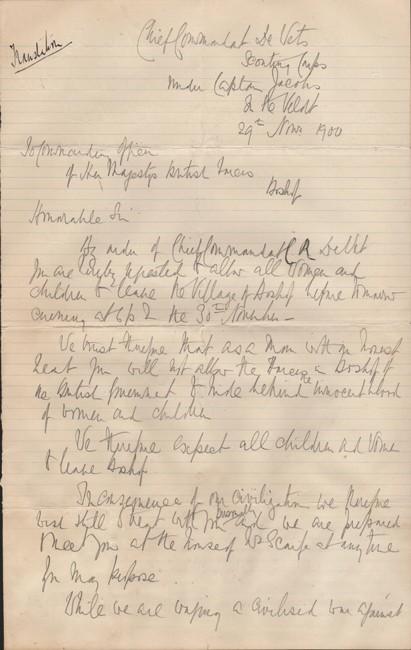 Translation
Chief Commandant De Wets
Scouting Corps
Under Captain Jacobs
In the Veldt
29th Novr 1900
To Commanding Officer
of Her Majestys British Forces
Boshof
Honorable Sir
By order of Chief Commandant C R DeWet
you are hereby requested to allow all women and
children to leave the Village of Boshof before tomorrow
evening at 6 p the 30th November -
We trust therefore that as a man with an honest
heart you will not allow the Forces in Boshof of
the British Government to hide behind the innocent blood
of women and children
We therefore expect all children and women
to leave Boshof
In consequence of our civilization we therefore
still treat with you and we are prepared
to meet you at the house of at any time
for may purpose.
While we are waging a civilised war against